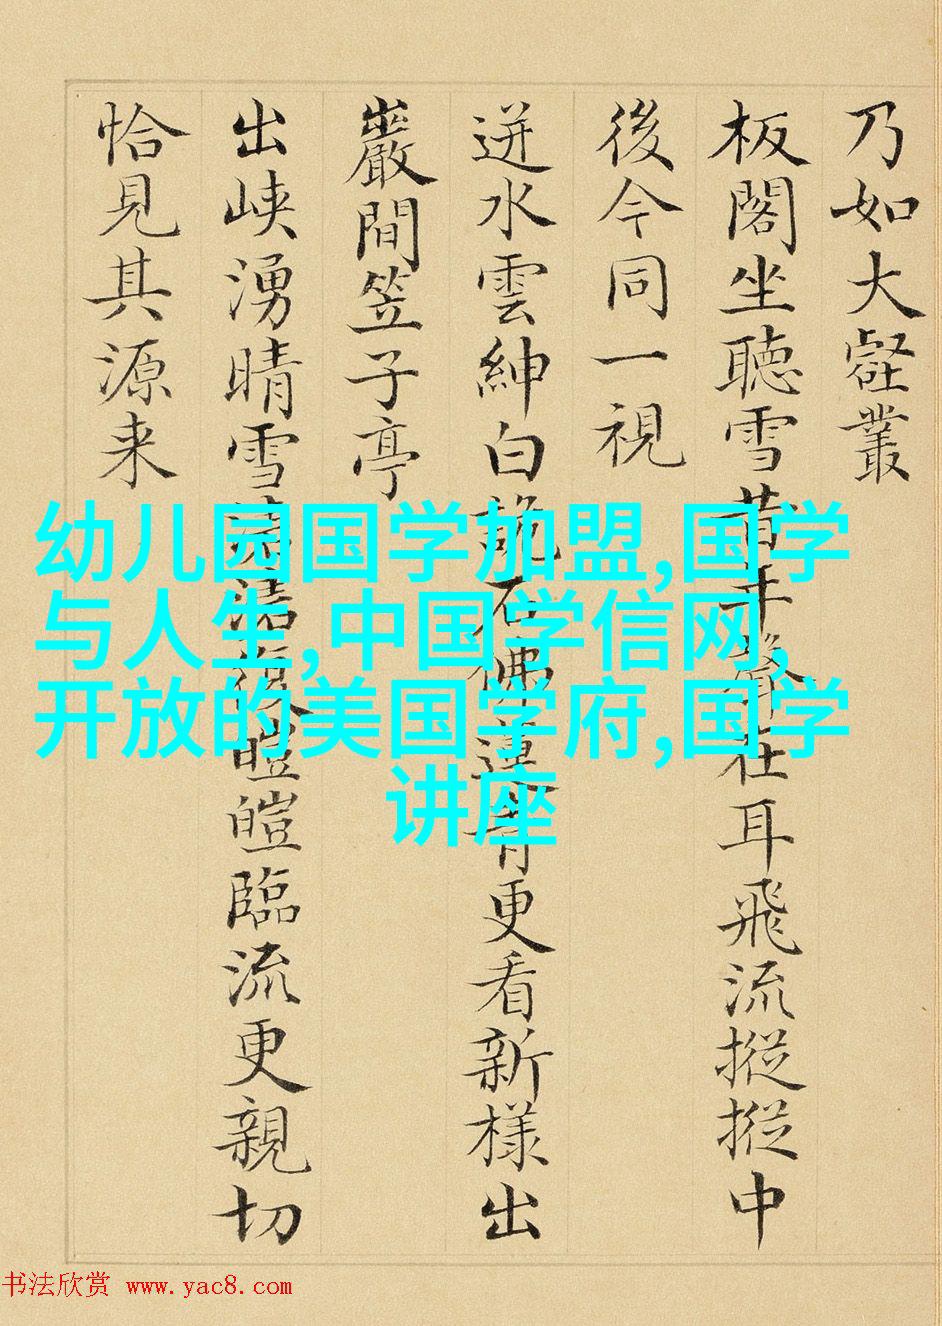 乃如大壑叢
板閣坐聽雪昔年聲在耳飛流摐摐中
後今同一視
迸水雲紳白詭石佛蓮青更看新樣出
巖間笠子亭
出峽湧晴雪皚皚臨流更親切
恰見其源来
幼儿园国学加盟,国学
与人生,中国学信网,
开放的美国学府,国学
讲座
书法欣赏 www.yac8.com